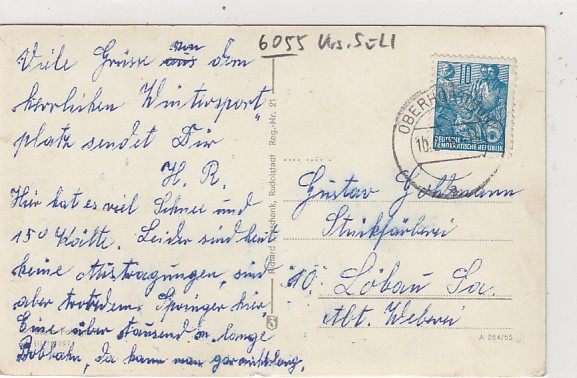 6055 Krs. Suhl
Viele Grüsse von dem
herrlichen Wintersport
platz sendet Dir
H. R.
Hier hat es viel Schnee und
15° Kälte. Leider sind heut
keine Austragungen, sind
aber trotzdem Springer hier,
Eine über tausend m. lange
Bobbahn, da kann man
Schenk, Rudolstadt Reg.-Nr. 21
OBERH
10
DEUTSCHE
DEMOKRATISCHE REPUBLIK
Gustav Gohlmann
Strickfärberei
10. Löbau Sa.
Abt. Weberei
A 264/55